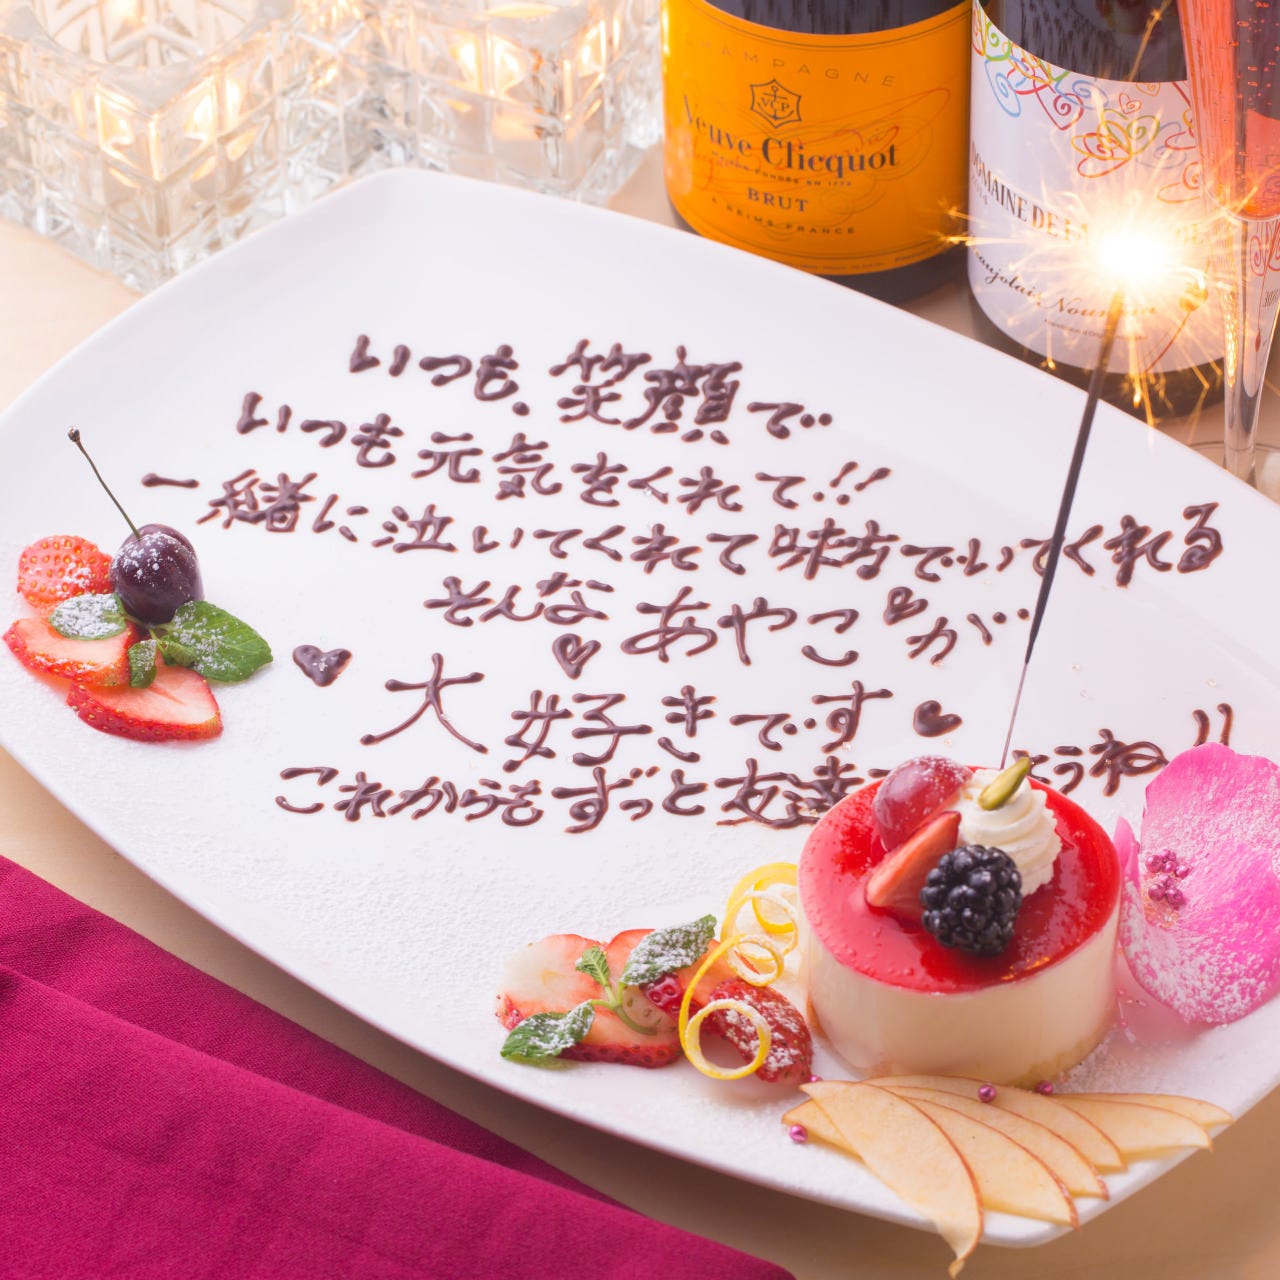 CHAMPAGNE
VCP
Veuve Clicquot
MAISON FONDÉE EN 1772
BRUT
A REIMS FRANCE
DOMAINE DE LA
Beaujolais Nouveau
いつも、笑顔で…
いつも元気をくれて…!!
一緒に泣いてくれて味方でいてくれる
そんなあやこ♡が…
♥ 大好きです ♥
これからもずっと友達 ようね!!